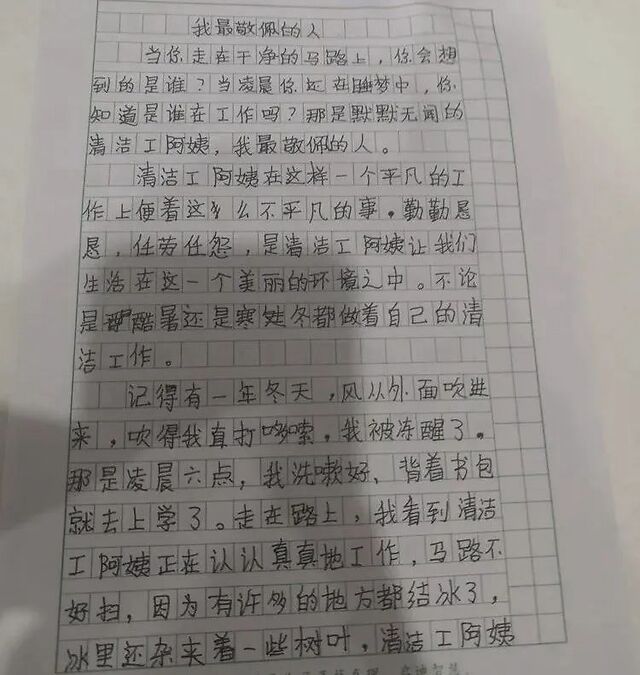 我最敬佩的人
当你走在干净的马路上，你会想
到的是谁？当凌晨你还在睡梦中，你
知道是谁在工作吗？那是默默无闻的
清洁工阿姨，我最敬佩的人。
清洁工阿姨在这样一个平凡的工
作上便着这么不平凡的事。勤勤恳
恳，任劳任怨，是清洁工阿姨让我们
生活在这一个美丽的环境之中。不论
是酷暑还是寒冬都做着自己的清
洁工作。
记得有一年冬天，风从外面吹进
来，吹得我直打哆嗦，我被冻醒了。
那是凌晨六点，我洗嗽好、背着书包
就去上学了。走在路上，我看到清洁
工阿姨正在认认真真地工作，马路不
好扫，因为有许多的地方都结冰了，
冰里还杂夹着一些树叶，清洁工阿姨